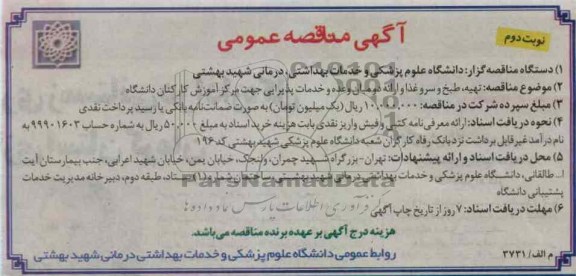 آگهی مناقصه عمومی
نوبت دوم
۱) دستگاه مناقصه‌گزار: دانشگاه علوم پزشکی و خدمات بهداشتی، درمانی شهید بهشتی
۲) موضوع مناقصه: تهیه، طبخ و سرو غذا و ارائه میان وعده و خدمات پذیرایی جهت مرکز آموزش کارکنان دانشگاه
۳) مبلغ سپرده شرکت در مناقصه: ریال (یک میلیون تومان) به صورت ضمانت‌نامه بانکی یا رسید پرداخت نقدی
۴) نحوه دریافت اسناد: ارائه معرفی نامه کتبی و فیش واریز نقدی بابت هزینه خرید اسناد به مبلغ ۵۰،۰۰۰ ریال به شماره حساب ۹۹۹۰۱۶۰۳ به
نام درآمد غیرقابل برداشت نزد بانک رفاه کارگران شعبه دانشگاه علوم پزشکی شهید بهشتی کد ۱۹۶
۵) محل دریافت اسناد و ارائه پیشنهادات: تهران - بزرگراه شهید چمران، ولنجک، خیابان یمن، خیابان شهید اعرابی، جنب بیمارستان آیت
ا... طالقانی، دانشگاه علوم پزشکی و خدمات بهداشتی درمانی شهید بهشتی، ساختمان شماره (۱) ستاد، طبقه دوم، دبیرخانه مدیریت خدمات
پشتیبانی دانشگاه
۶) مهلت دریافت اسناد: ۷ روز از تاریخ چاپ آگهی
هزینه درج آگهی بر عهده برنده مناقصه می‌باشد.
م الف/ ۳۷۳۱
روابط عمومی دانشگاه علوم پزشکی و خدمات بهداشتی درمانی شهید بهشتی
ParsNamadData
گردآوری اطلاعات پارس نماد داده‌ها